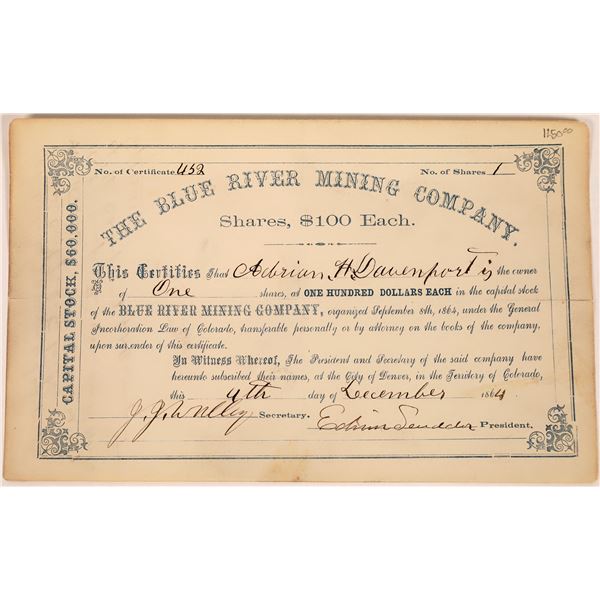 1150.00
No. of Certificate 452 No. of Shares 1
THE BLUE RIVER MINING COMPANY.
Shares, $100 Each.
CAPITAL STOCK, $60,000.
This Certifies That Adrian H. Davenport is the owner
of One shares, at ONE HUNDRED DOLLARS EACH in the capital stock
of the BLUE RIVER MINING COMPANY, organized September 8th, 1864, under the General
Incorporation Law of Colorado, transferable personally or by attorney on the books of the company,
upon surrender of this certificate.
In Witness Whereof, The President and Secretary of the said company have
hereunto subscribed their names, at the City of Denver, in the Territory of Colorado,
this 9th day of December 1864.
Secretary. Edwin Scudder President.